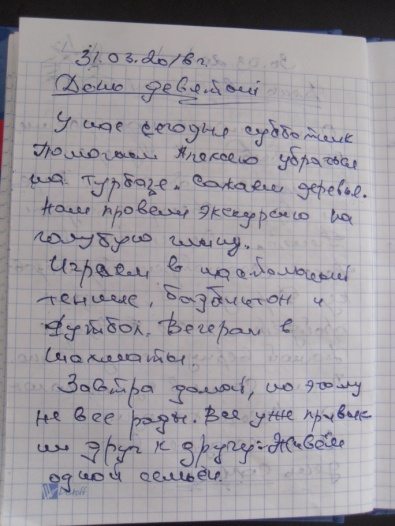 31.03.2018 г.
День девятый
У нас сегодня субботник
Помогаем Алексею убраться
на турбазе. Сажаем деревья.
Нам провели экскурсию на
голубую глину.
Играем в настольный
теннис, бадбинтон и
футбол. Вечерам в
шахматы.
Завтра домой, но этому
не все рады. Все уже привык
ли друг к другу. Живём
одной семьёй.